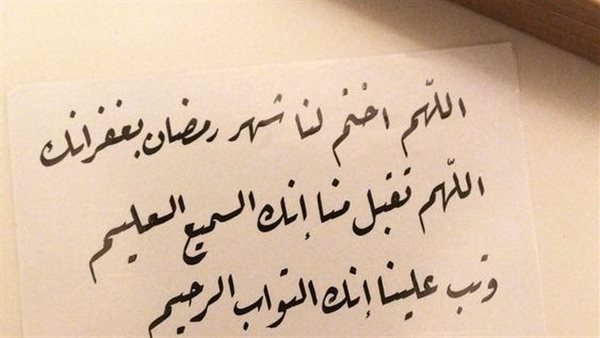 اللّهم اختم لنا شهر رمضان بغفرانك
اللّهم تقبل منا إنك السميع العليم
وتب علينا إنك التواب الرحيم